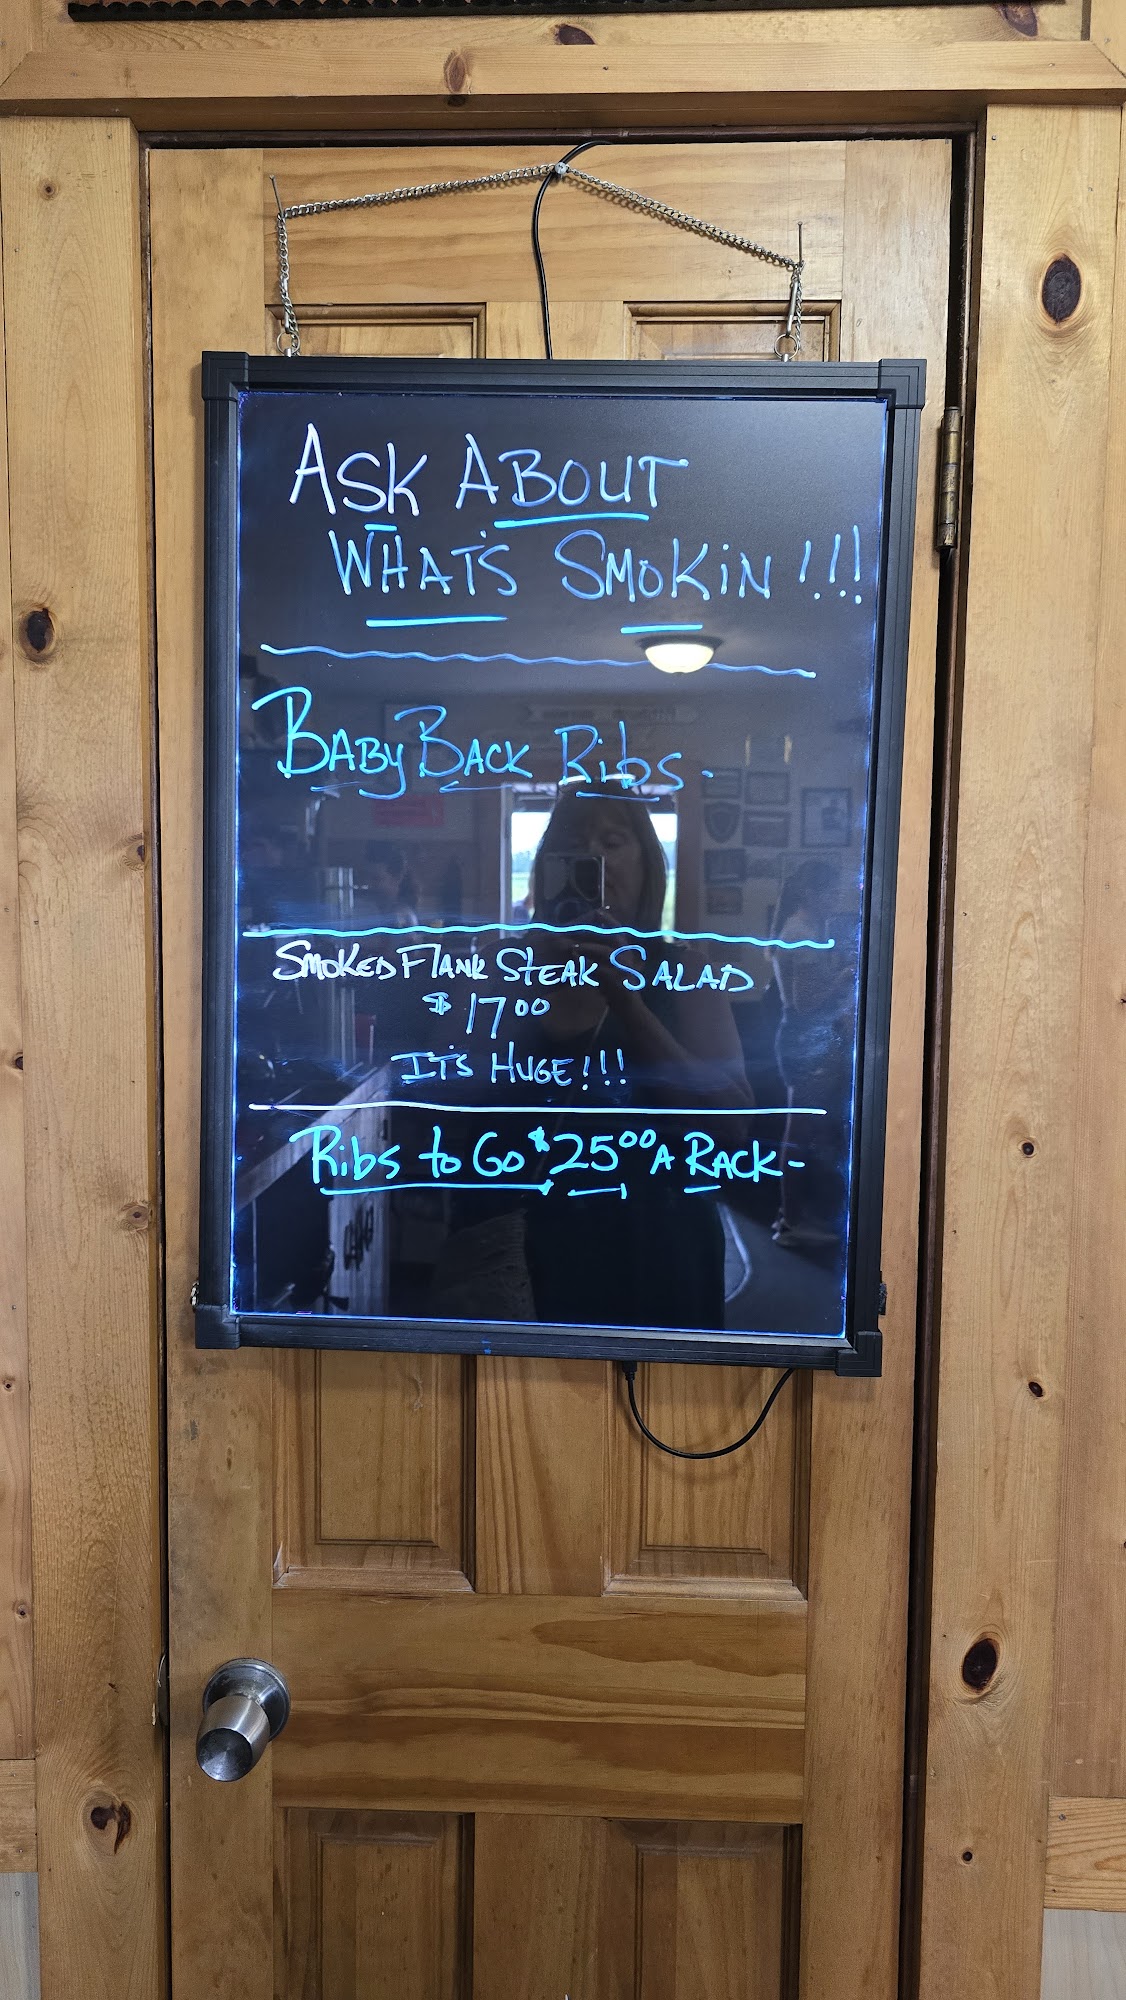 ASK ABOUT
WHAT'S SMOKiN !!!
BABY BACK Ribs.
SMOKED FLANK STEAK SALAD
$17.00
IT'S HUGE!!!
Ribs to Go $25.00 A RACK-